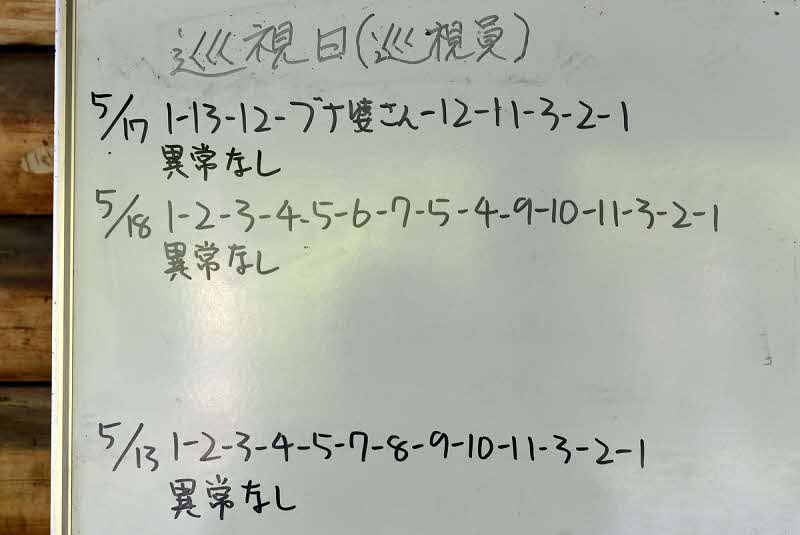 巡視日(巡視員)
5/17 1-13-12-ブナ婆さん-12-11-3-2-1
異常なし
5/18 1-2-3-4-5-6-7-5-4-9-10-11-3-2-1
異常なし
5/13 1-2-3-4-5-7-8-9-10-11-3-2-1
異常なし